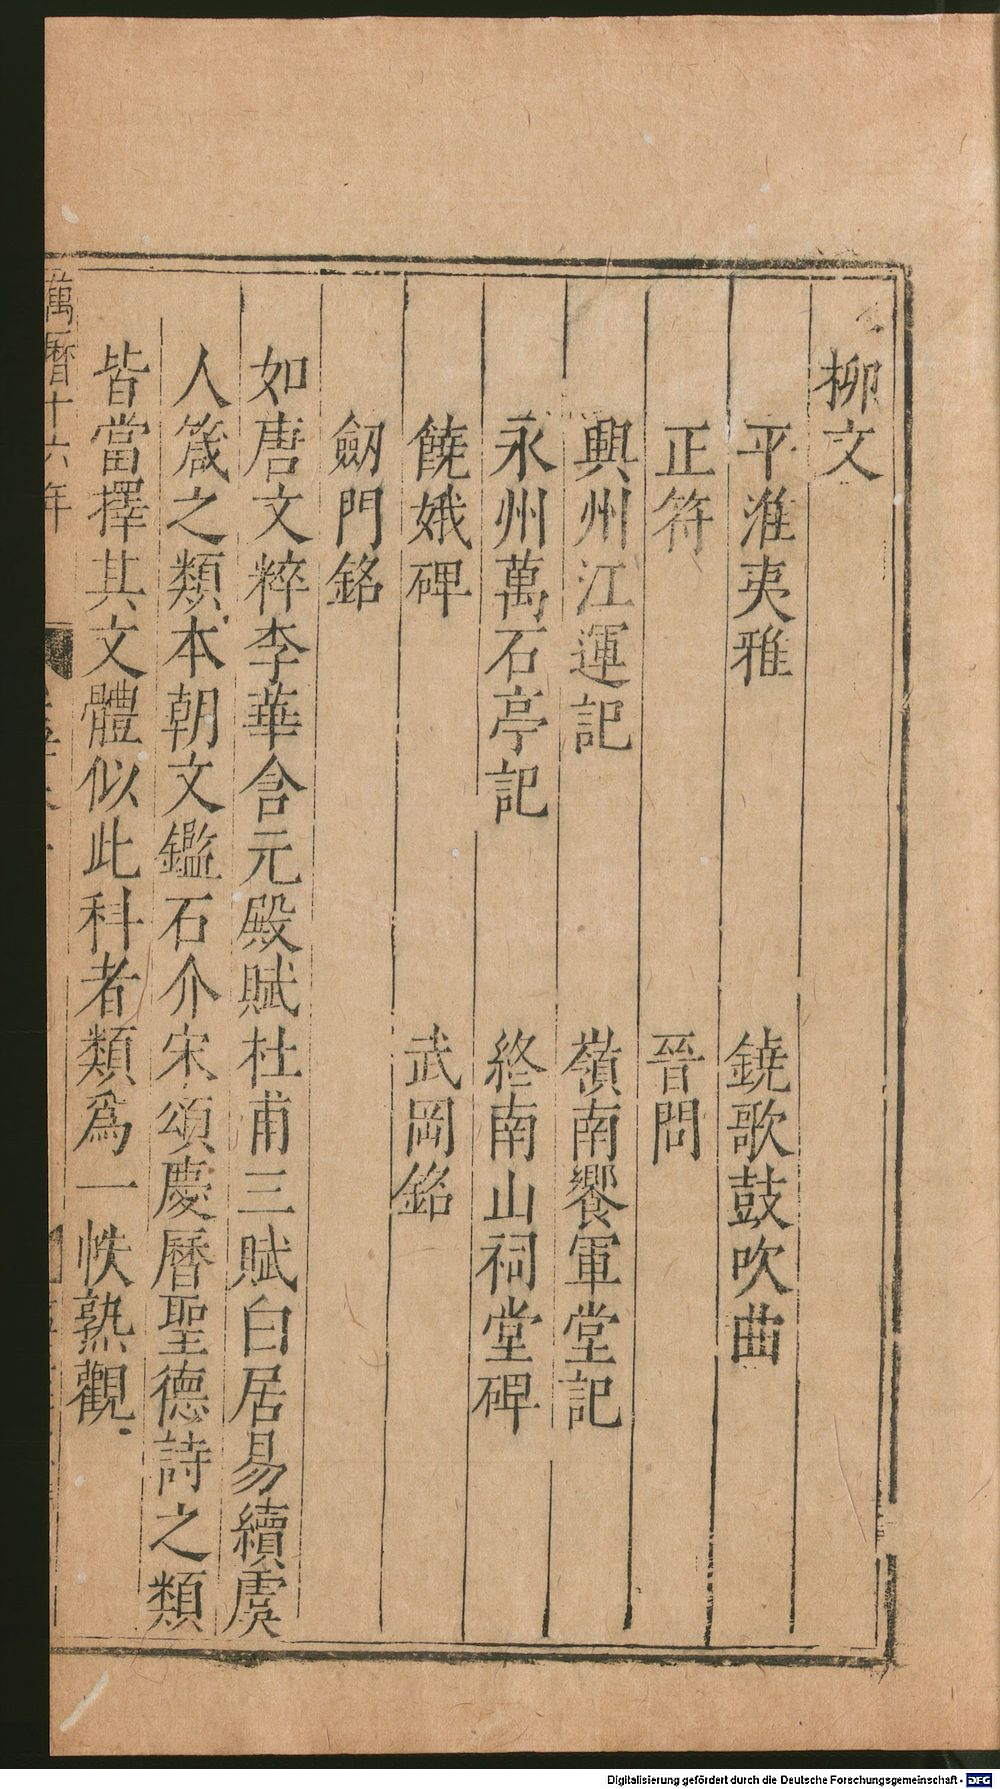 柳文
平淮夷雅　鐃歌鼓吹曲
正符　晉問
興州江運記　嶺南饗軍堂記
永州萬石亭記　終南山祠堂碑
饒娥碑　武岡銘
劒門銘
如唐文粹李華含元殿賦杜甫三賦白居易續虞
人箴之類本朝文鑑石介宋頌慶曆聖德詩之類
皆當擇其文體似此科者類爲一帙熟觀
萬曆十六年
Digitalisierung gefördert durch die Deutsche Forschungsgemeinschaft - DFG